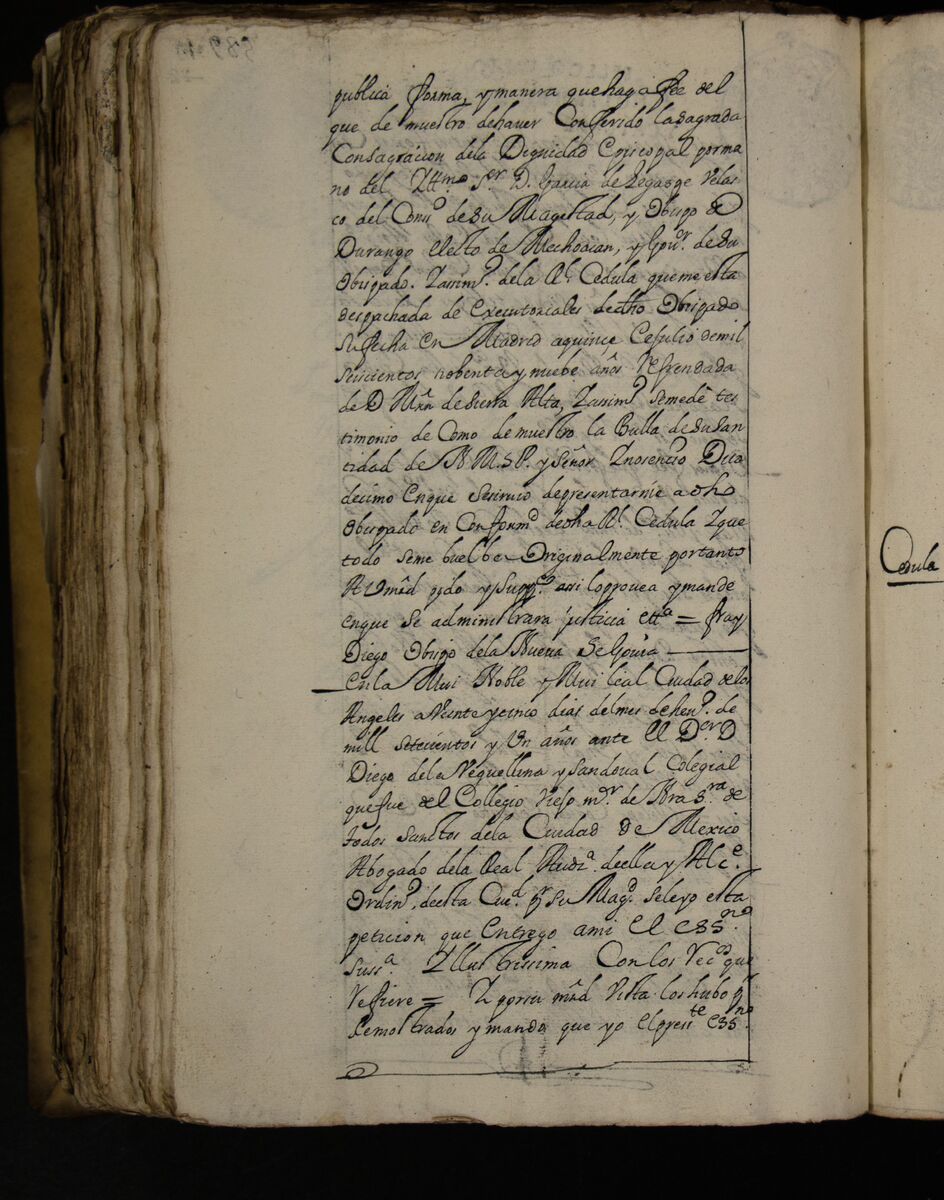 publica forma, y manera que haga fee del
que demuestro dehaver Conferido la Sagrada
Consagracion dela Dignidad Episcopal porma
no del Illmo. Sr. D. Garcia de Legaspe Velas
co del Conso. de Su Magestad, y Obispo de
Durango electo de Mechoacan, y Govr. de Su
Obispado. Yassimo. dela Rl. Cedula que me esta
despachada de Executoriales decho Obispado
Su fecha en Madrid a quince de Julio demil
Seiscientos nobenta y nuebe años refrendada
de D Mxn de Sierra Alta, Yassimo Semedé tes
timonio de Como demuestro la Bulla de Su San
tidad de N. M. S. P. y Señor Inosencio Duo
decimo enque Sesirvio depresentarme a dho
Obispado en Conformd. dedha Rl. Cedula Y que
todo Seme buelba Originalmente portanto
A Vmd. pido y Suppco. assi loprovea y mande
enque Se administrara justicia etta. = fray
Diego Obispo dela Nueva Segovia
En la Mui Noble y Mui leal Ciudad de los
Angeles a Veinte y cinco dias del mes de heno. de
mill Setecientos y Un años ante El Dor. D
Diego dela Veguellina y Sandoval Colegial
que fue del Collegio Viejo mr. de Nra Sra. de
todos Sanctos dela Ciudad de Mexico
Abogado dela Real Auda. deella y Alce.
Ordino. deesta Ciud. pr Su Magd. Seleyo esta
peticion que Entrego ami El essno.
Sussa. Yllustrissima Con los Recdos que
refiere = Y por su md Vista los hubo pr
Demostrados y mando que yo El presste essno.
Cedula